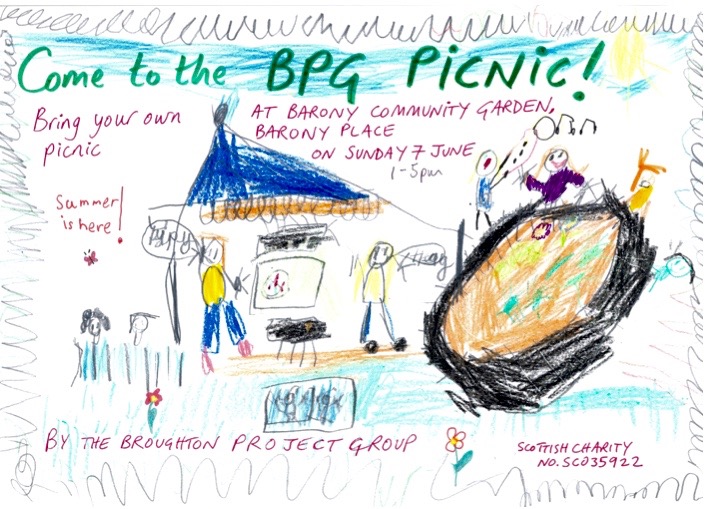 Come to the BPG PiCNiC!
Bring your own
picnic
AT BARONY COMMUNITY GARDEN,
BARONY PLACE
ON SUNDAY 7 JUNE
1-5pm
Summer
is here!
BY THE BROUGHTON PROJECT GROUP
SCOTTISH CHARITY
NO. SC035922